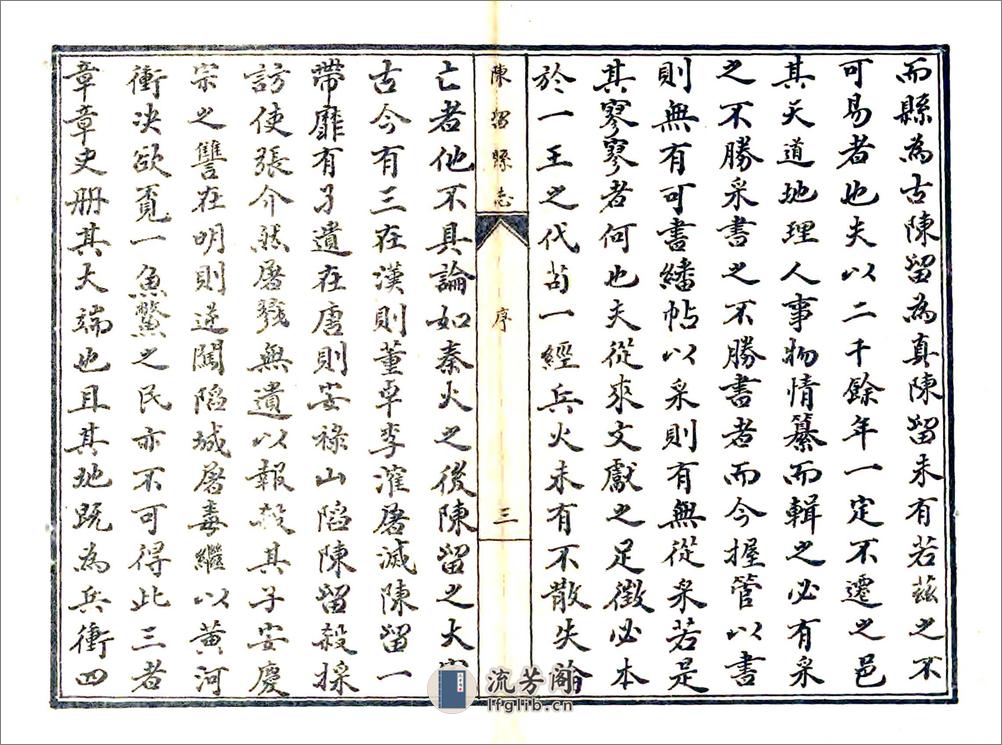 而縣為古陳留為真陳留未有若茲之不
可易者也夫以二千餘年一定不遷之邑
其天道地理人事物情纂而輯之必有采
之不勝采書之不勝書者而今握管以書
則無有可書繙帖以采則有無從采若是
其寥寥者何也夫從來文獻之足徵必本
於一王之代苟一經兵火未有不散失淪
陳留縣志
序
三
亡者他不具論如秦火之後陳留之大
古今有三在漢則董卓李傕屠滅陳留一
帶靡有孑遺在唐則安祿山陷陳留殺採
訪使張介然屠戮無遺以報殺其子安慶
宗之讐在明則逆闖陷城屠毒繼以黃河
衝決欲覓一魚鱉之民亦不可得此三者
章章史册其大端也且其地既為兵衝四
流芳阁
lfglib.cn